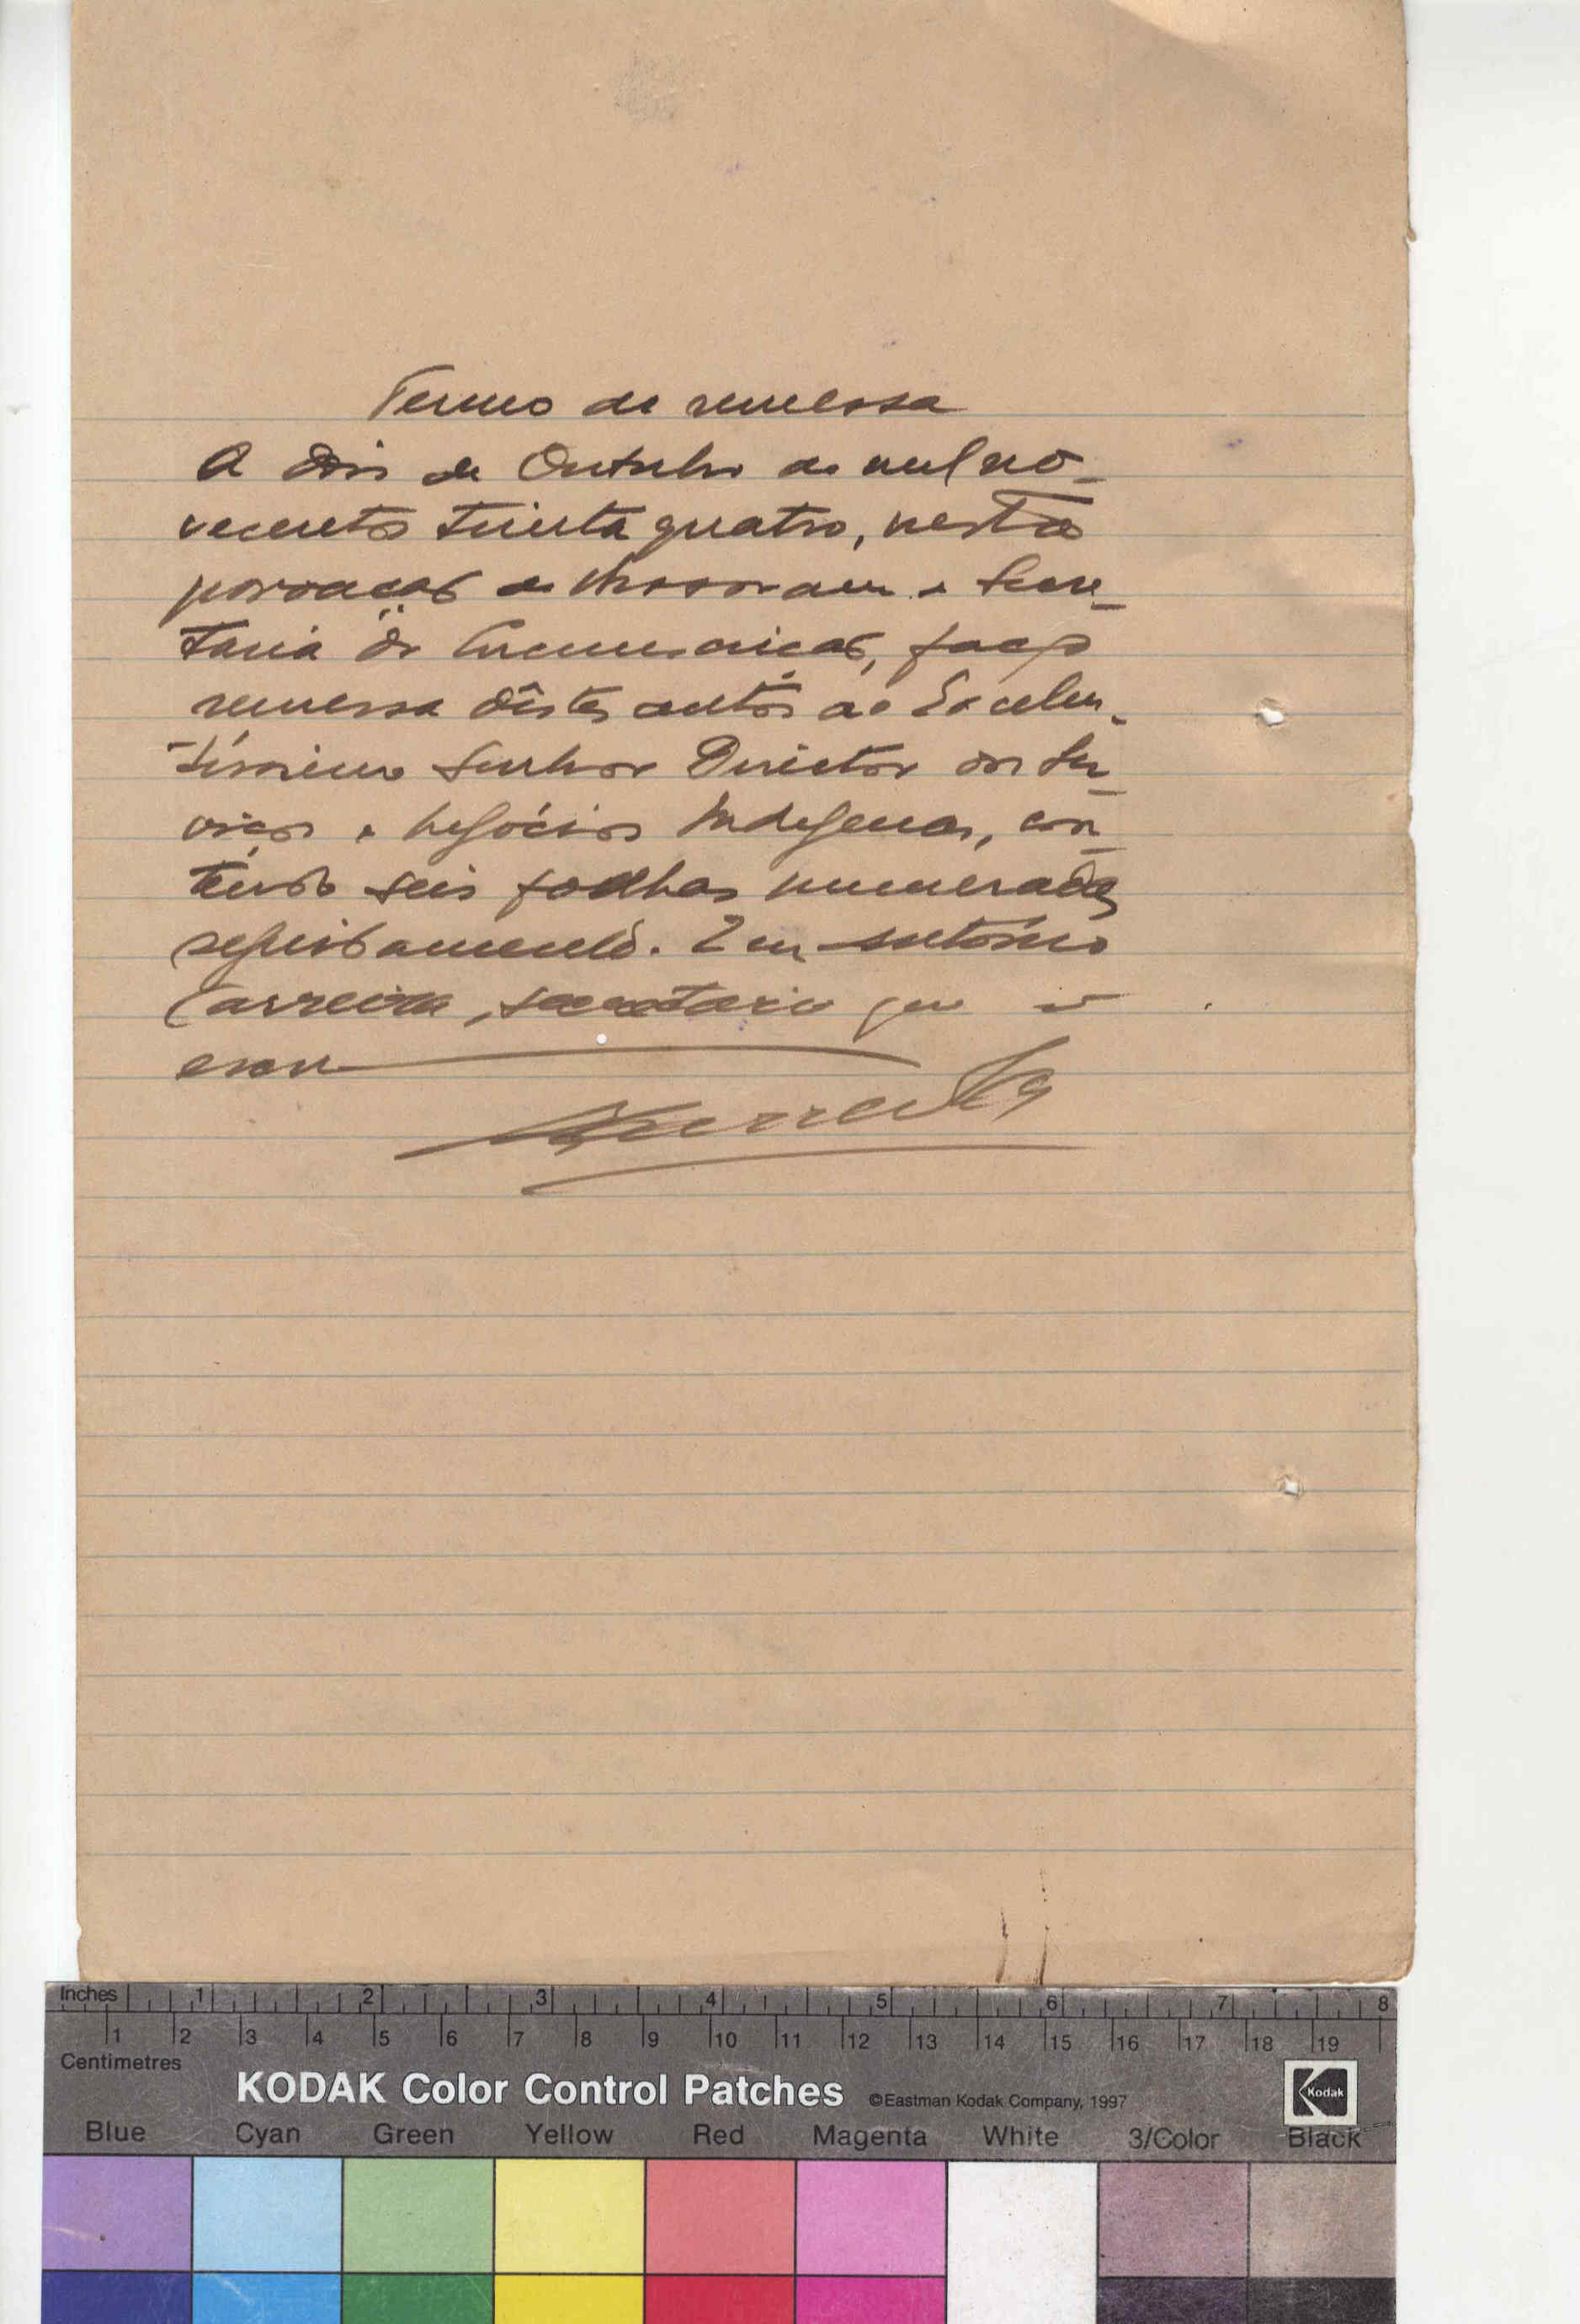 Termo de remessa
A dois de Outubro de mil no-
vecentos trinta quatro, nesta
povoação de Mossoram e Secre-
taria da Circunscrição, faço
remessa dêstes autos ao Excelen-
tíssimo Senhor Director dos Ser-
viços e Negócios Indígenas, con-
tendo seis folhas numeradas
seguidamente. Eu António
Carreira, secretario que o
escrevi
ACarreira
Inches 1 2 3 4 5 6 7 8
1 2 3 4 5 6 7 8 9 10 11 12 13 14 15 16 17 18 19
Centimetres
KODAK Color Control Patches ©Eastman Kodak Company, 1997
Kodak
Blue Cyan Green Yellow Red Magenta White 3/Color Black